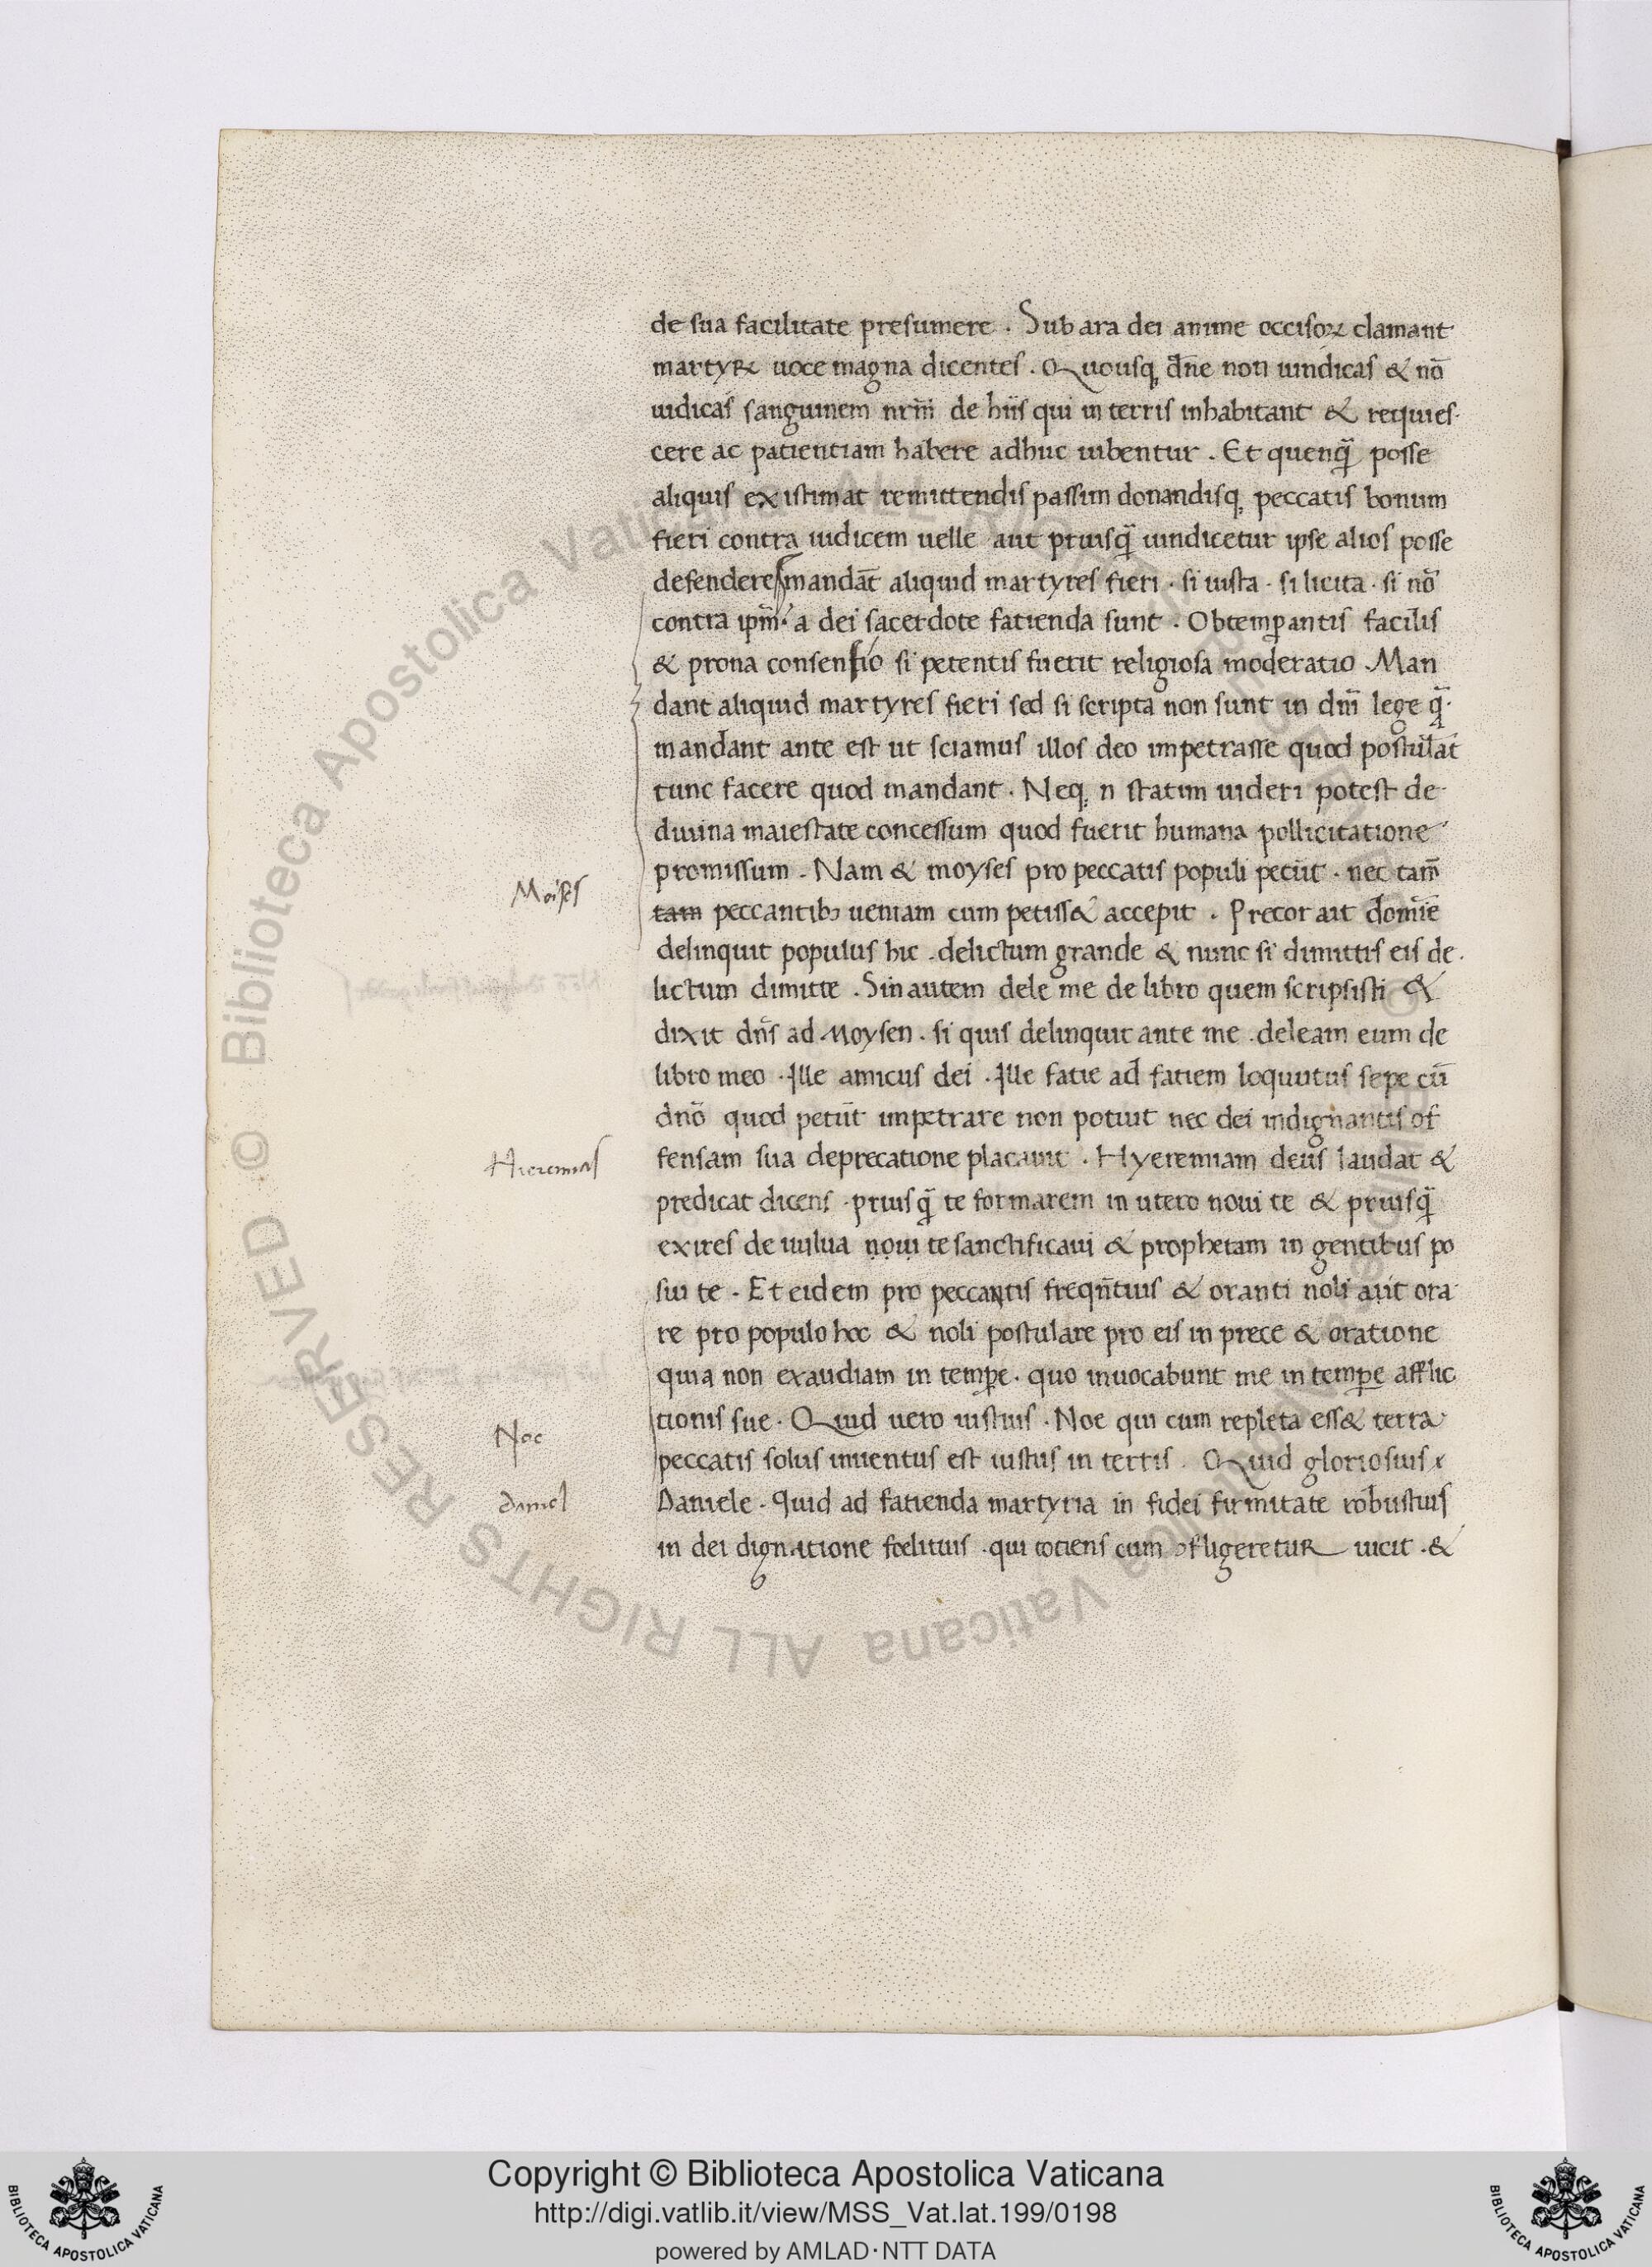 de sua facilitate presumere . Sub ara dei anime occisoꝝ clamant
martyꝝ uoce magna dicentes . Quousq, dn̄e non uindicas & nō
iudicas sanguinem nrm̄ de hiis qui in terris inhabitant & requies-
cere ac patientiam habere adhuc iubentur . Et quenq̃ posse
aliquis existimat remittendis passim donandisq, peccatis bonum
fieri contra iudicem uelle aut priusq̃ uindicetur ipse alios posse
defendere mandāt aliquid martyres fieri . si iusta . si licita . si nō
contra ipm̄ . a dei sacerdote fatienda sunt . Obtemꝑantis facilis
& prona consensio si petentis fuerit religiosa moderatio . Man
dant aliquid martyres fieri sed si scripta non sunt in dn̄i lege q̃
mandant ante est ut sciamus illos deo impetrasse quod postulāt
tunc facere quod mandant . Neq, n statim uideri potest de
diuina maiestate concessum quod fuerit humana pollicitatione
promissum . Nam & moyses pro peccatis populi petiit . nec tam̄
Moises
tam peccantibꝫ ueniam cum petiss& accepit . Precor ait domine
delinquit populus hic . delictum grande & nunc si dimittis eis de-
lictum dimitte . Sin autem dele me de libro quem scripsisti &
dixit dn̄s ad Moysen . si quis delinquit ante me . deleam eum de
libro meo . Ille amicus dei . Ille fatie ad fatiem loquutus sepe cū
dnō quod petiit impetrare non potuit nec dei indignantis of
Hieremias
fensam sua deprecatione placauit . Hyeremiam deus laudat &
predicat dicens . priusq̃ te formarem in utero noui te & priusq̃
exires de uulua noui te sanctificaui & prophetam in gentibus po
sui te . Et eidem pro peccantis freqn̄tius & oranti noli ait ora
re pro populo hoc & noli postulare pro eis in prece & oratione
quia non exaudiam in temꝑe . quo inuocabunt me in temꝑe afflic
tionis sue . Quid uero iustius . Noe qui cum repleta ess& terra
Noe
peccatis solus inuentus est iustus in terris . Quid gloriosius
Daniel
Daniele . Quid ad fatienda martyria in fidei firmitate robustius
in dei dignatione foelitius . qui totiens cum ɔfligeretur uicit . &
Copyright © Biblioteca Apostolica Vaticana
http://digi.vatlib.it/view/MSS_Vat.lat.199/0198
powered by AMLAD·NTT DATA
BIBLIOTECA APOSTOLICA VATICANA
BIBLIOTECA APOSTOLICA VATICANA